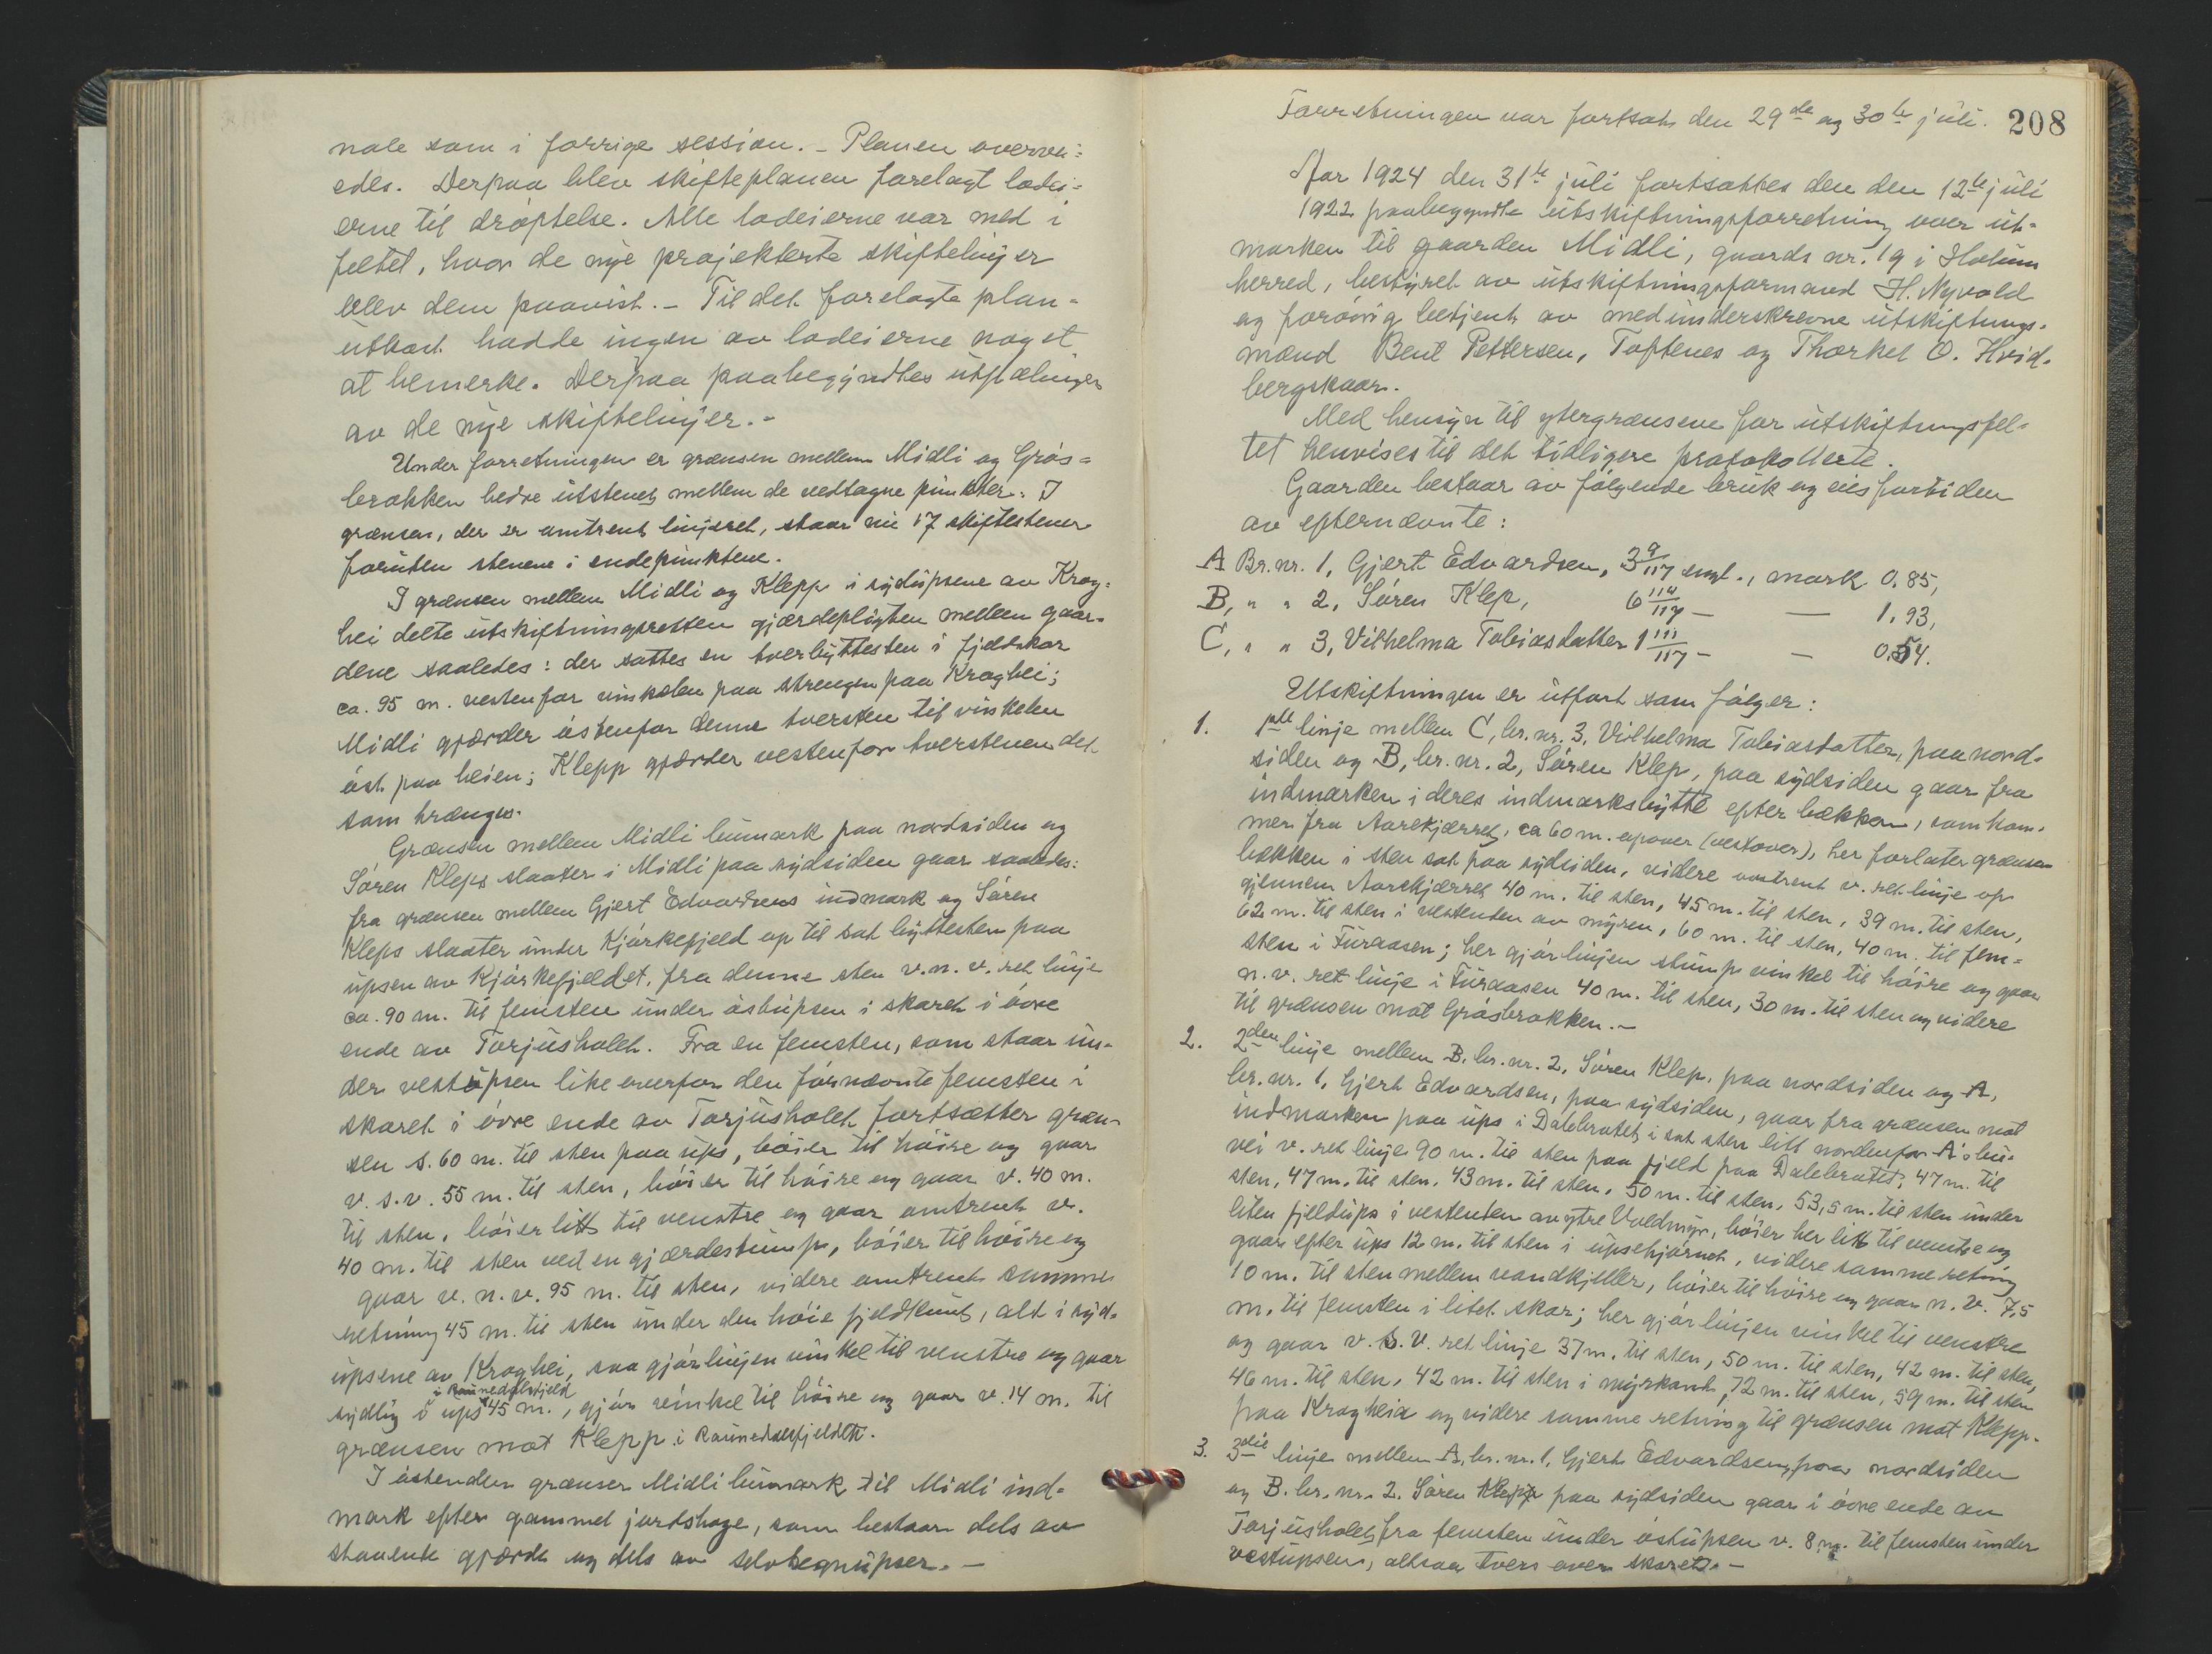 nale som i forrige session. - Planen overvei=
edes. Derpaa blev skifteplanen forelagt lodei=
erne til drøftelse. Alle lodeierne var med i
feltet, hvor de nye projekterte skiftelinjer
blev dem paavist. - Til det forelagte plan=
utkast hadde ingen av lodeierne noget
at bemerke. Derpaa paabegyndtes utpælingen
av de nye skiftelinjer. -
Under forretningen er grænsen mellem Midli og Grøs=
brøkken bedre utstenet mellem de vedtagne punkter. I
grænsen, der er omtrent linjeret, staar nu 17 skiftestener
foruten stenene i endepunktene.
I grænsen mellem Midli og Klepp i sydupsene av Krag=
hei delte utskiftningsretten gjærdepligten mellem gaar=
dene saaledes: der sattes en tverbyttesten i fjeldskar
ca. 95 m. vestenfor vinkelen paa strengen paa Kraghei;
Midli gjærder østenfor denne tversten til vinkelen
øst paa heien; Klepp gjærder vestenfor tverstenen det
som trænges.
Grænsen mellem Midli heimark paa nordsiden og
Søren Kleps slaater i Midli paa sydsiden gaar saaledes:
fra grænsen mellem Gjert Edvardsens indmark og Søren
Kleps slaater under Kjørkefjeld op til sat byttesten paa
upsen av Kjørkefjeldet, fra denne sten v.n.v. ret linje
ca. 90 m. til femsten under østupsen i skaret i øvre
ende av Torjusholet. Fra en femsten, som staar un=
der vestupsen like overfor den førnævnte femsten i
skaret i øvre ende av Torjusholet fortsætter græn=
sen s. 60 m. til sten paa ups, bøier til høire og gaar
v.s.v. 55 m. til sten, bøier til høire og gaar v. 40 m.
til sten, bøier litt til venstre og gaar omtrent v.
40 m. til sten ved en gjærdestump, bøier til høire og
gaar v.n.v. 95 m. til sten, videre omtrent samme
retning 45 m. til sten under den høie fjeldknut, alt i syd=
upsene av Kraghei, saa gjør linjen vinkel til venstre og gaar
i Raunedalsfjeld
sydlig i ups 45 m., gjør vinkel til høire og gaar v. 14 m. til
grænsen mot Klepp i Raunedalsfjeldet.
I østenden grænser Midli heimark til Midli ind=
mark efter gammel jordshage, som bestaar dels av
staaende gjærde og dels av selvtegnupser. -
Forretningen var fortsat den 29de og 30te juli.
208
Aar 1924 den 31te juli fortsattes den den 12te juli
1922 paabegyndte utskiftningsforretning over ut=
marken til gaarden Midli, gaards nr. 19 i Holum
herred, bestyret av utskiftningsformand H. Nyvold
og forøvrig betjent av medunderskrevne utskiftnings=
mænd Bent Pettersen, Toftenes og Thorkel O. Hvid=
bergskaar.
Med hensyn til ytergrænsene for utskiftningsfel=
tet henvises til det tidligere protokollerte.
Gaarden bestaar av følgende bruk og eies fortiden
av efternævnte:
A Br. nr. 1, Gjert Edvardsen, 3 9/117 engl., mark 0.85,
B, " " 2, Søren Klep, 6 114/117 - - 1.93,
C, " " 3, Vilhelma Tobiasdatter 1 111/117 - - 0.54.
Utskiftningen er utført som følger:
1. 1ste linje mellem C, br. nr. 3, Vilhelma Tobiasdatter, paa nord=
siden og B, br. nr. 2, Søren Klep, paa sydsiden gaar fra
indmarken i deres indmarksbytte efter bækken, som kom=
mer fra Aarekjærret, ca 60 m. opover (vestover), her forlater grænsen
bækken i sten sat paa sydsiden, videre omtrent v. ret linje op
gjennem Aarekjærret 40 m. til sten, 45 m. til sten, 39 m. til sten,
62 m. til sten i vestenden av myren, 60 m. til sten, 40 m. til fem=
sten i Furaasen; her gjør linjen stump vinkel til høire og gaar
n.v. ret linje i Furaasen 40 m. til sten, 30 m. til sten og videre
til grænsen mot Grøsbrøkken. -
2. 2den linje mellem B. br. nr. 2, Søren Klep, paa nordsiden og A,
br. nr. 1, Gjert Edvardsen, paa sydsiden, gaar fra grænsen mot
indmarken paa ups i Dalebrotet i sat sten litt nordenfor A's hei=
vei v. ret linje 90 m. til sten paa fjeld paa Dalebrotet, 47 m. til
sten, 47 m. til sten, 43 m. til sten, 50 m. til sten, 53,5 m. til sten under
liten fjeldups i vestenden av ytre Voldmyr, bøier her litt til venstre og
gaar efter ups 12 m. til sten i upsehjørnet, videre samme retning
10 m. til sten mellem vandkjeller, bøier til høire og gaar n.v. 7,5
m. til femsten i litet skar; her gjør linjen vinkel til venstre
og gaar v.s.v. ret linje 37 m. til sten, 50 m. til sten, 42 m. til sten,
46 m. til sten, 42 m. til sten i myrkant, 72 m. til sten, 59 m. til sten
paa Kragheia og videre samme retning til grænsen mot Klepp.
3. 3die linje mellem A, br. nr. 1, Gjert Edvardsen, paa nordsiden
og B. br. nr. 2. Søren Klepp paa sydsiden gaar i øvre ende av
Torjusholet fra femsten under østupsen v. 8 m. til femsten under
vestupsen, altsaa tvers over skaret. -